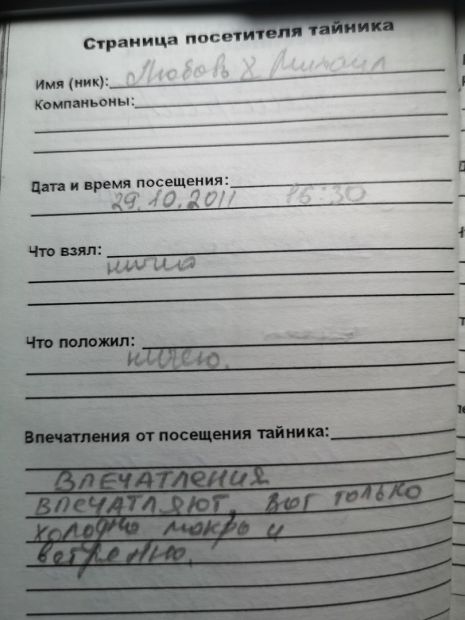 Страница посетителя тайника
Имя (ник): Любовь & Михаил
Компаньоны:
Дата и время посещения:
29.10.2011 16:30
Что взял:
ничего
Что положил:
ничего.
Впечатления от посещения тайника:
ВПЕЧАТЛЕНИЯ
ВПЕЧАТЛЯЮТ, вот только
холодно мокро и
ветренно.